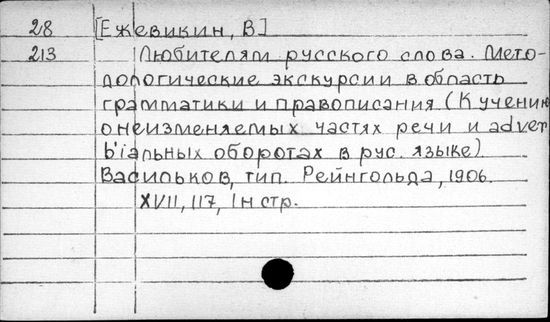 28 [Ежевикин, В]
213 Любителям русского слова. Мето-
дологические экскурсии в область
грамматики и правописания (К учению
о неизменяемых частях речи и adver
b'iальных оборотах в рус. языке)
Васильков, тип. Рейнгольда, 1906.
XVII, 117, 1н стр.